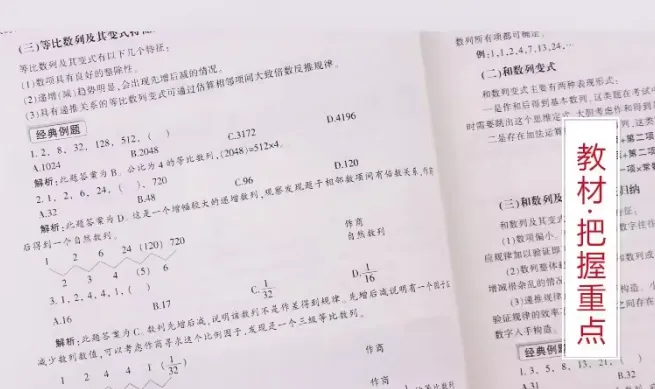 (三)等比数列及其变式特征
等比数列及其变式有以下几个特征:
(1)数项具有良好的整除性。
(2)递增(减)趋势明显,会出现先增后减的情况。
(3)具有递推关系的等比数列变式可通过估算相邻项间大致倍数反推规律。
经典例题
1. 2, 8, 32, 128, 512, ( )
A.1024 B.2048 C.3172 D.4196
解析:此题答案为 B。公比为 4 的等比数列,(2048)=512×4。
2. 1, 2, 6, 24, ( ), 720
A.32 B.48 C.96 D.120
解析:此题答案为 D。这是一个增幅较大的递增数列,观察发现题干相邻数项间有倍数关系,
后得到一个自然数列。
1 2 6 24 (120) 720 作商
2 3 4 (5) 6 自然数列
3. 1, 2, 4, 4, 1, ( )
A.16 B.17 C.1/32 D.1/16
解析:此题答案为 C。数列先增后减,说明该数列不是作差得到规律。先增后减说明有一个因子在
减少数列数值,可以考虑作商寻求这个比例因子,发现是一个三级等比数列。
1 2 4 4 1 (1/32) 作商
作商
数列所有项都可能是。
例:1,1,2,4,7,13,24,…
(二)和数列变式
和数列变式主要有两种表现形式:
一是作和后得到基本数列,这类题在考试中
时需要跳出这个思维定式,大胆考虑作和得到
二是存在加法运算
第二项
(三)和数列及 归纳
和数列及其变式
(1)数项偏小。
应规律加以验证即
(2)数列整体
增减很杂乱的情况
(3)递推规律
验证规律的效率
数字入手构造。
经典例题
1. 3, 5, 8, 13, 21, ( )
B.32
教材·把握重点